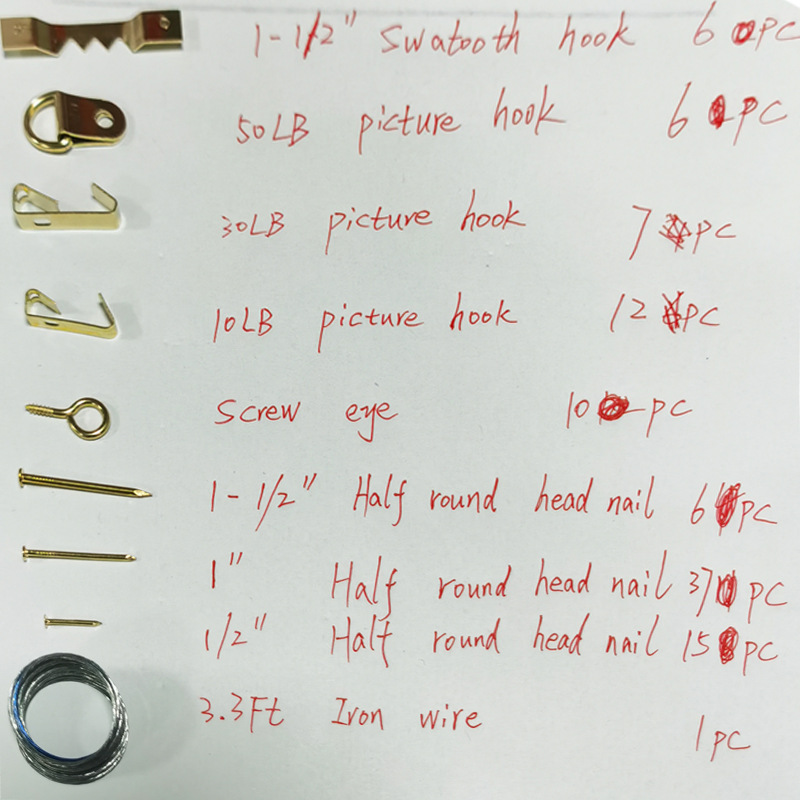 1-1/2" Swatooth hook 6 pc
50LB picture hook 6 pc
30LB picture hook 7 pc
10LB picture hook 12 pc
Screw eye 10 pc
1-1/2" Half round head nail 6 pc
1" Half round head nail 37 pc
1/2" Half round head nail 15 pc
3.3Ft Iron wire 1pc